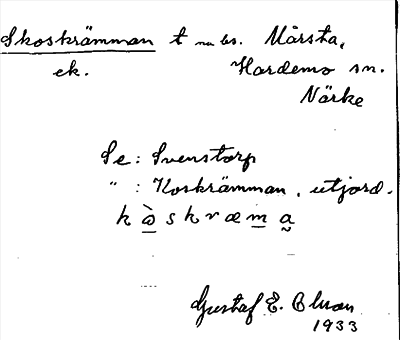 Skoskrämman t bs. Mårsta,
ek. Hardemo sn.
Närke
Se: Svenstorp
" : Koskrämman, utjord.
k ò̱ s k r æ m̱ a̰
Gustaf E. Olsson
1933